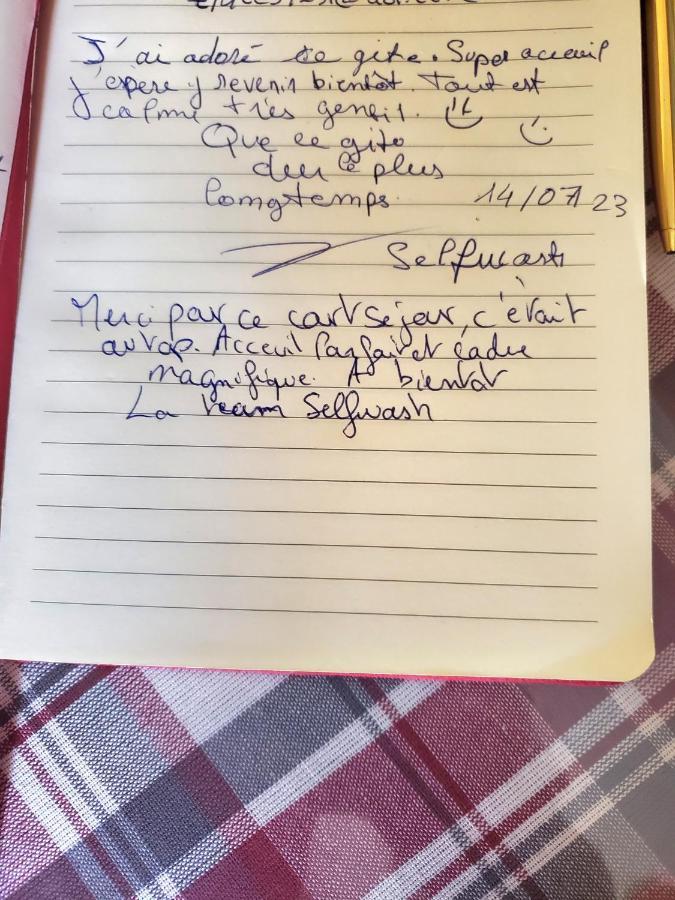 J'ai adoré ce gite. Super acceuil
j'espere y revenir bientôt. Tout est
calme très gentil.
Que ce gite
dur le plus
longtemps.
14/07/23
Selfwash
Merci par ce court séjour, c'était
au top. Acceuil Parfait et cadre
magnifique. A bientot
La team Selfwash